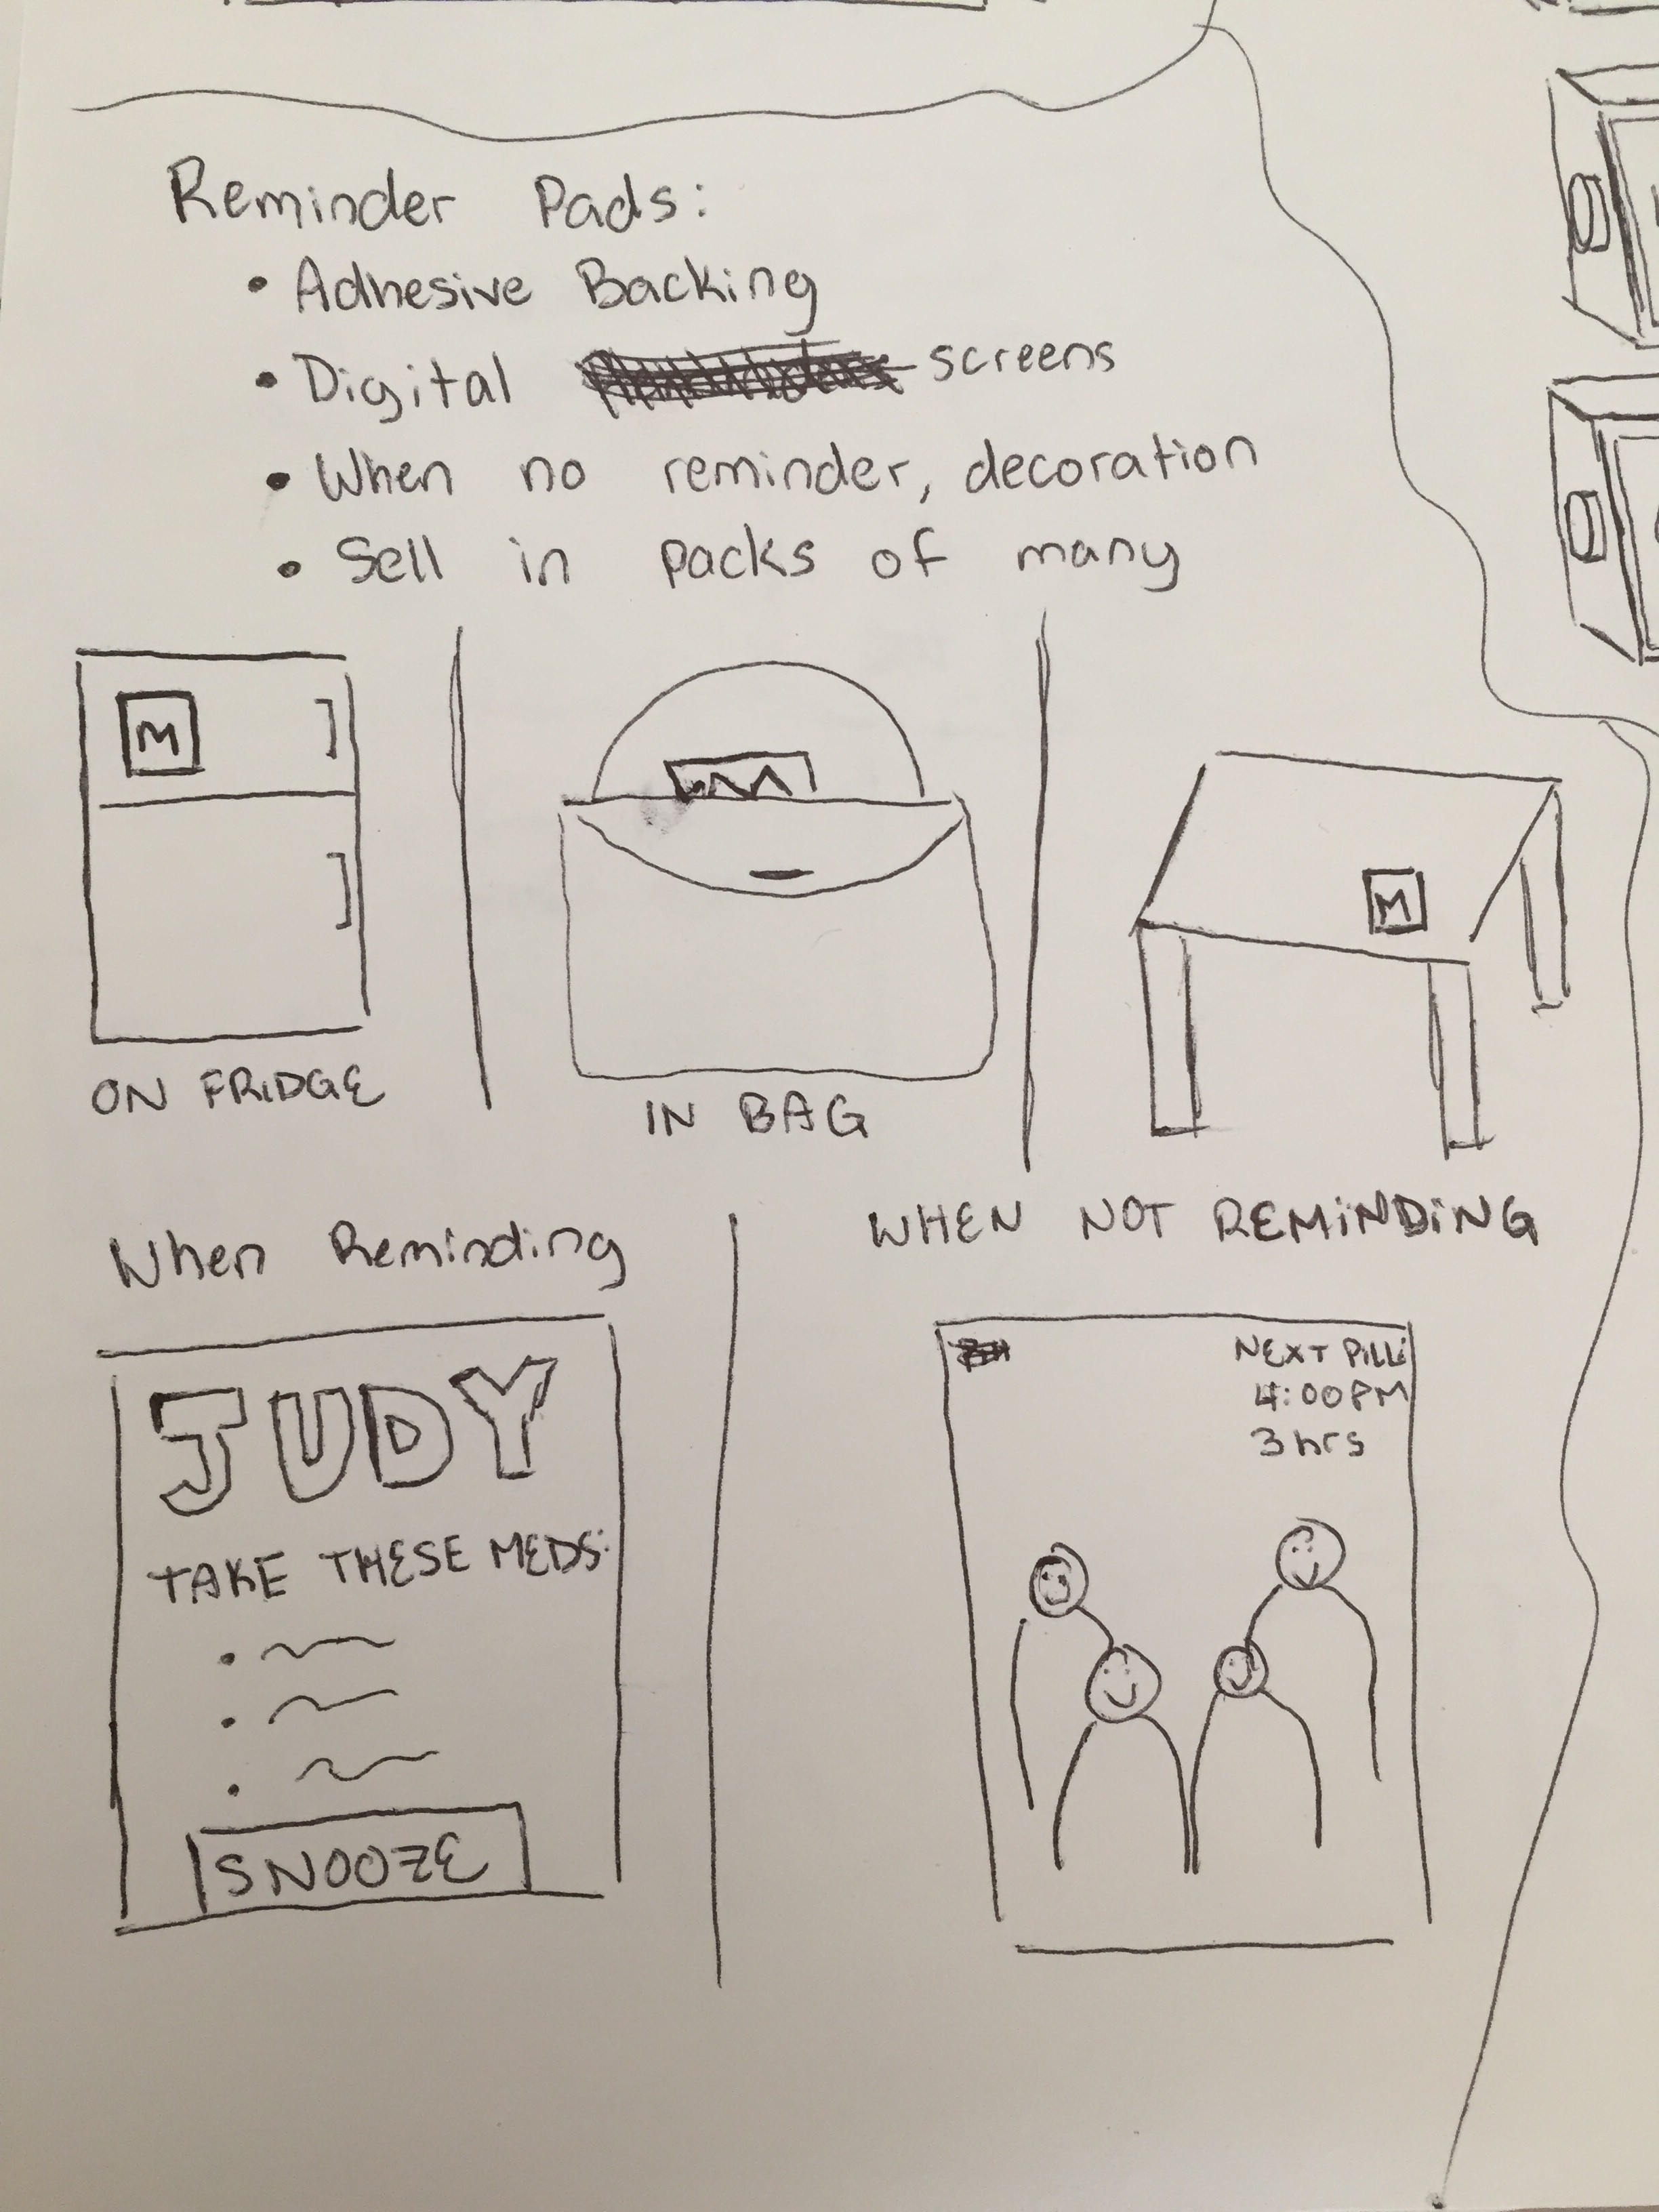 Reminder Pads:
• Adhesive Backing
• Digital screens
• When no reminder, decoration
• Sell in packs of many
M
M
ON FRIDGE
IN BAG
When Reminding
WHEN NOT REMINDING
JUDY
TAKE THESE MEDS:
SNOOZE
NEXT PILL:
4:00PM
3 hrs